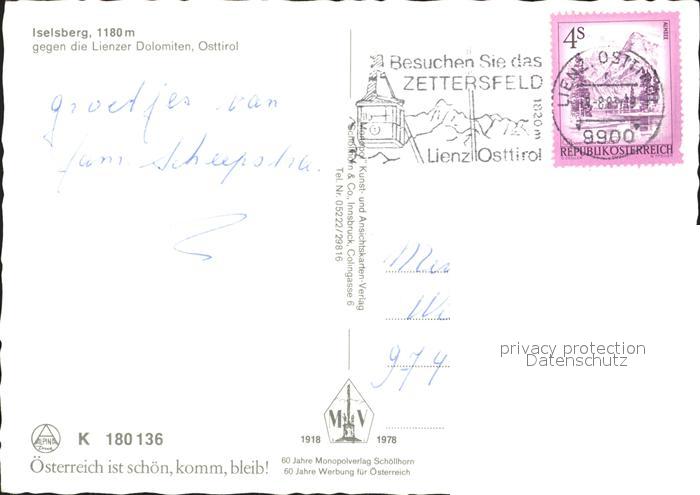 Iselsberg, 1180 m
gegen die Lienzer Dolomiten, Osttirol
groetjes van
fam. Scheepstra.
Besuchen Sie das
ZETTERSFELD
1820 m
Lienz Osttirol
4S
ALMSEE
LIENZ, OSTTIROL
9900
REPUBLIK ÖSTERREICH
Kunst- und Ansichtskarten-Verlag
& Co., Innsbruck, Colingasse 6
Tel. Nr. 05222/29816
974
privacy protection
Datenschutz
ALPINA
K 180 136
Österreich ist schön, komm, bleib!
M V
1918 1978
60 Jahre Monopolverlag Schöllhorn
60 Jahre Werbung für Österreich